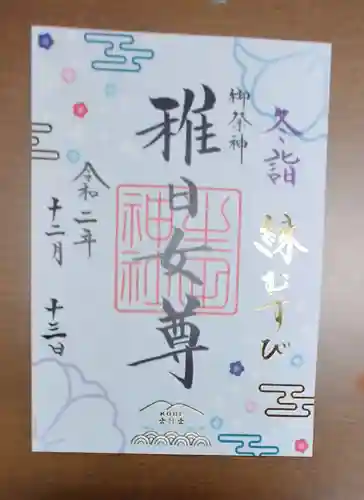 冬詣
縁むすび
御祭神
稚日女尊
令和二年
十二月
十三日
生田
神社
KOBE